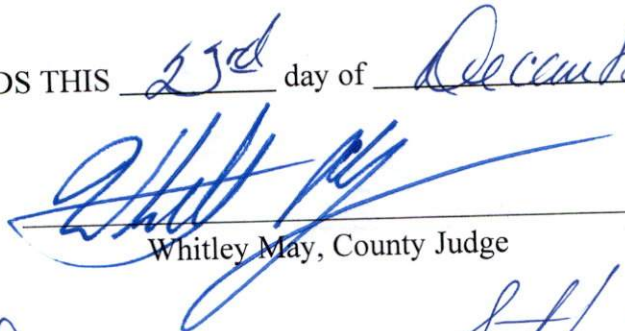 DS THIS 23rd day of Decemb
Whitley May, County Judge